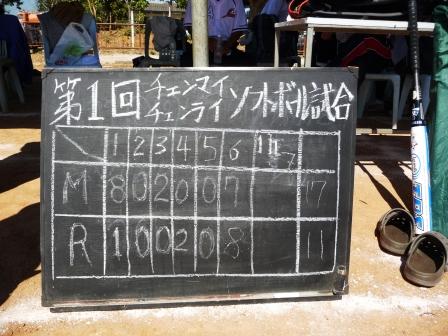 第1回 チェンマイ チェンライ ソフトボール試合
1 2 3 4 5 6 7
M 8 0 2 0 0 7 17
R 1 0 0 2 0 8 11